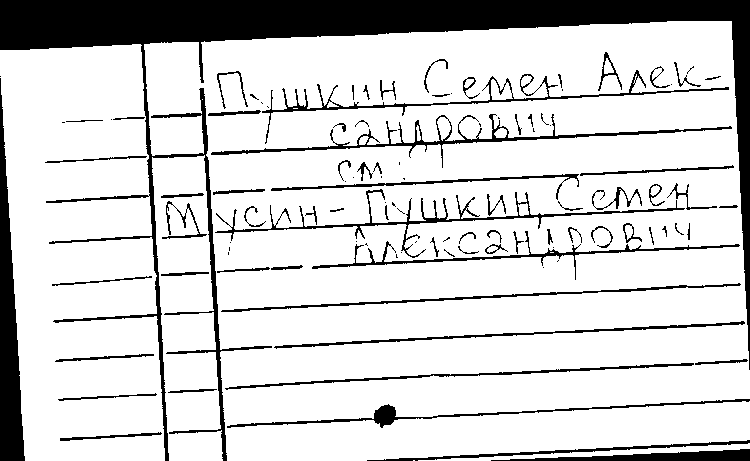 Пушкин, Семен Алек-
сандрович
см:
Мусин-Пушкин, Семен
Александрович